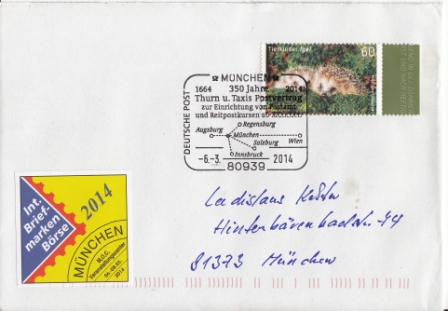 Tierkinder Igel
60
MÜNCHEN
1664 350 Jahre 2014
Thurn u. Taxis Postvertrag
zur Einrichtung von Postamt
und Reitpostkursen ab
Augsburg
Regensburg
München
Salzburg
Wien
Innsbruck
-6.-3. 2014
80939
DEUTSCHE POST
Int.
Brief-
marken
Börse
2014
MÜNCHEN
M.O.C.
Veranstaltungscenter
06.-08.03.
2014
Ladislaus
Hinterbärenbadstr. 44
81373 München